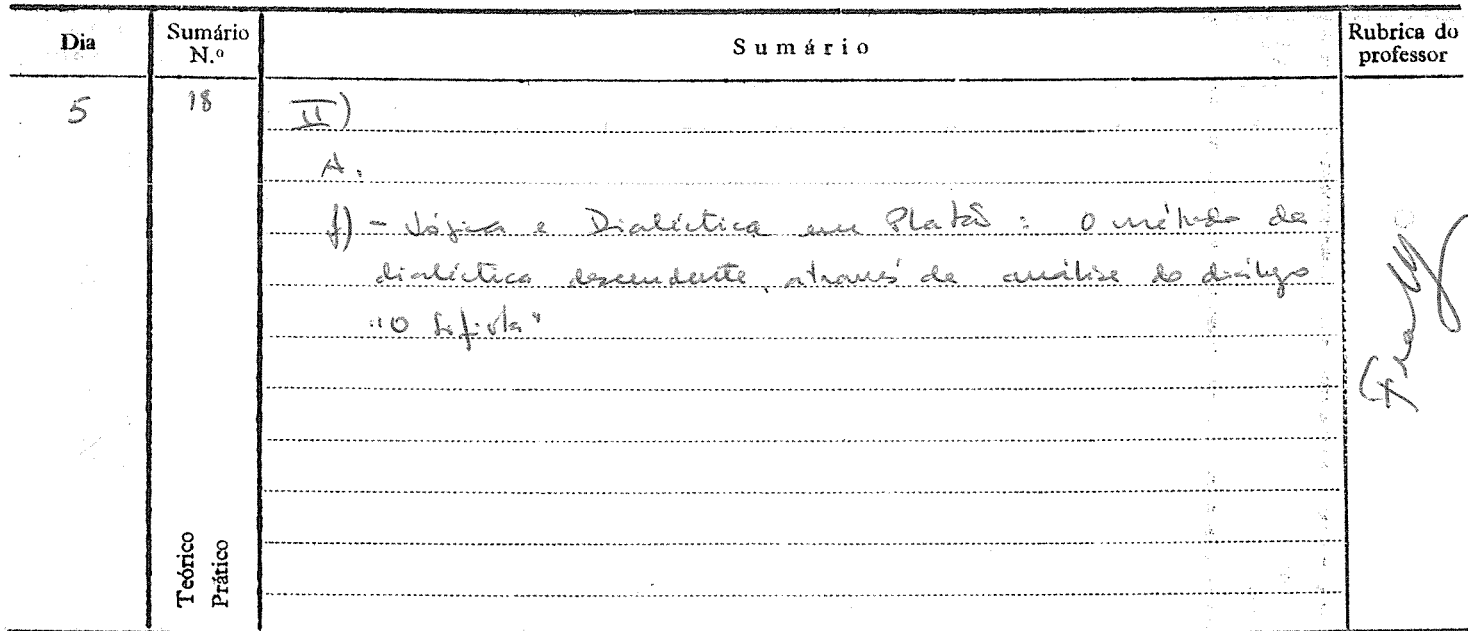 Dia Sumário N.º Sumário Rubrica do professor
5 18 II)
A.
f) - Lógica e Dialéctica em Platão : O método da
dialéctica descendente, através da análise do diálogo
"O Sofista"
Teórico
Prático